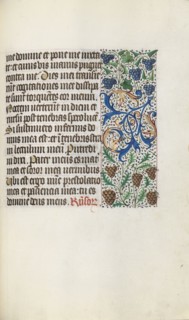 me domine et pone me iuxta
te et cuius vis manus pugnet
contra me. Dies mei transie
runt cogitationes mee dissipa
te sunt torquentes cor meum.
Noctem verterunt in diem et
rursum post tenebras spero lucem
Si sustinuero infernus do
mus mea est et in tenebris stra
vi lectulum meum Putredi
ni dixi. Pater meus es mater
mea et soror mea vermibus
Ubi est ergo nunc prestolatio
mea et paciencia mea: tu es
domine deus meus.